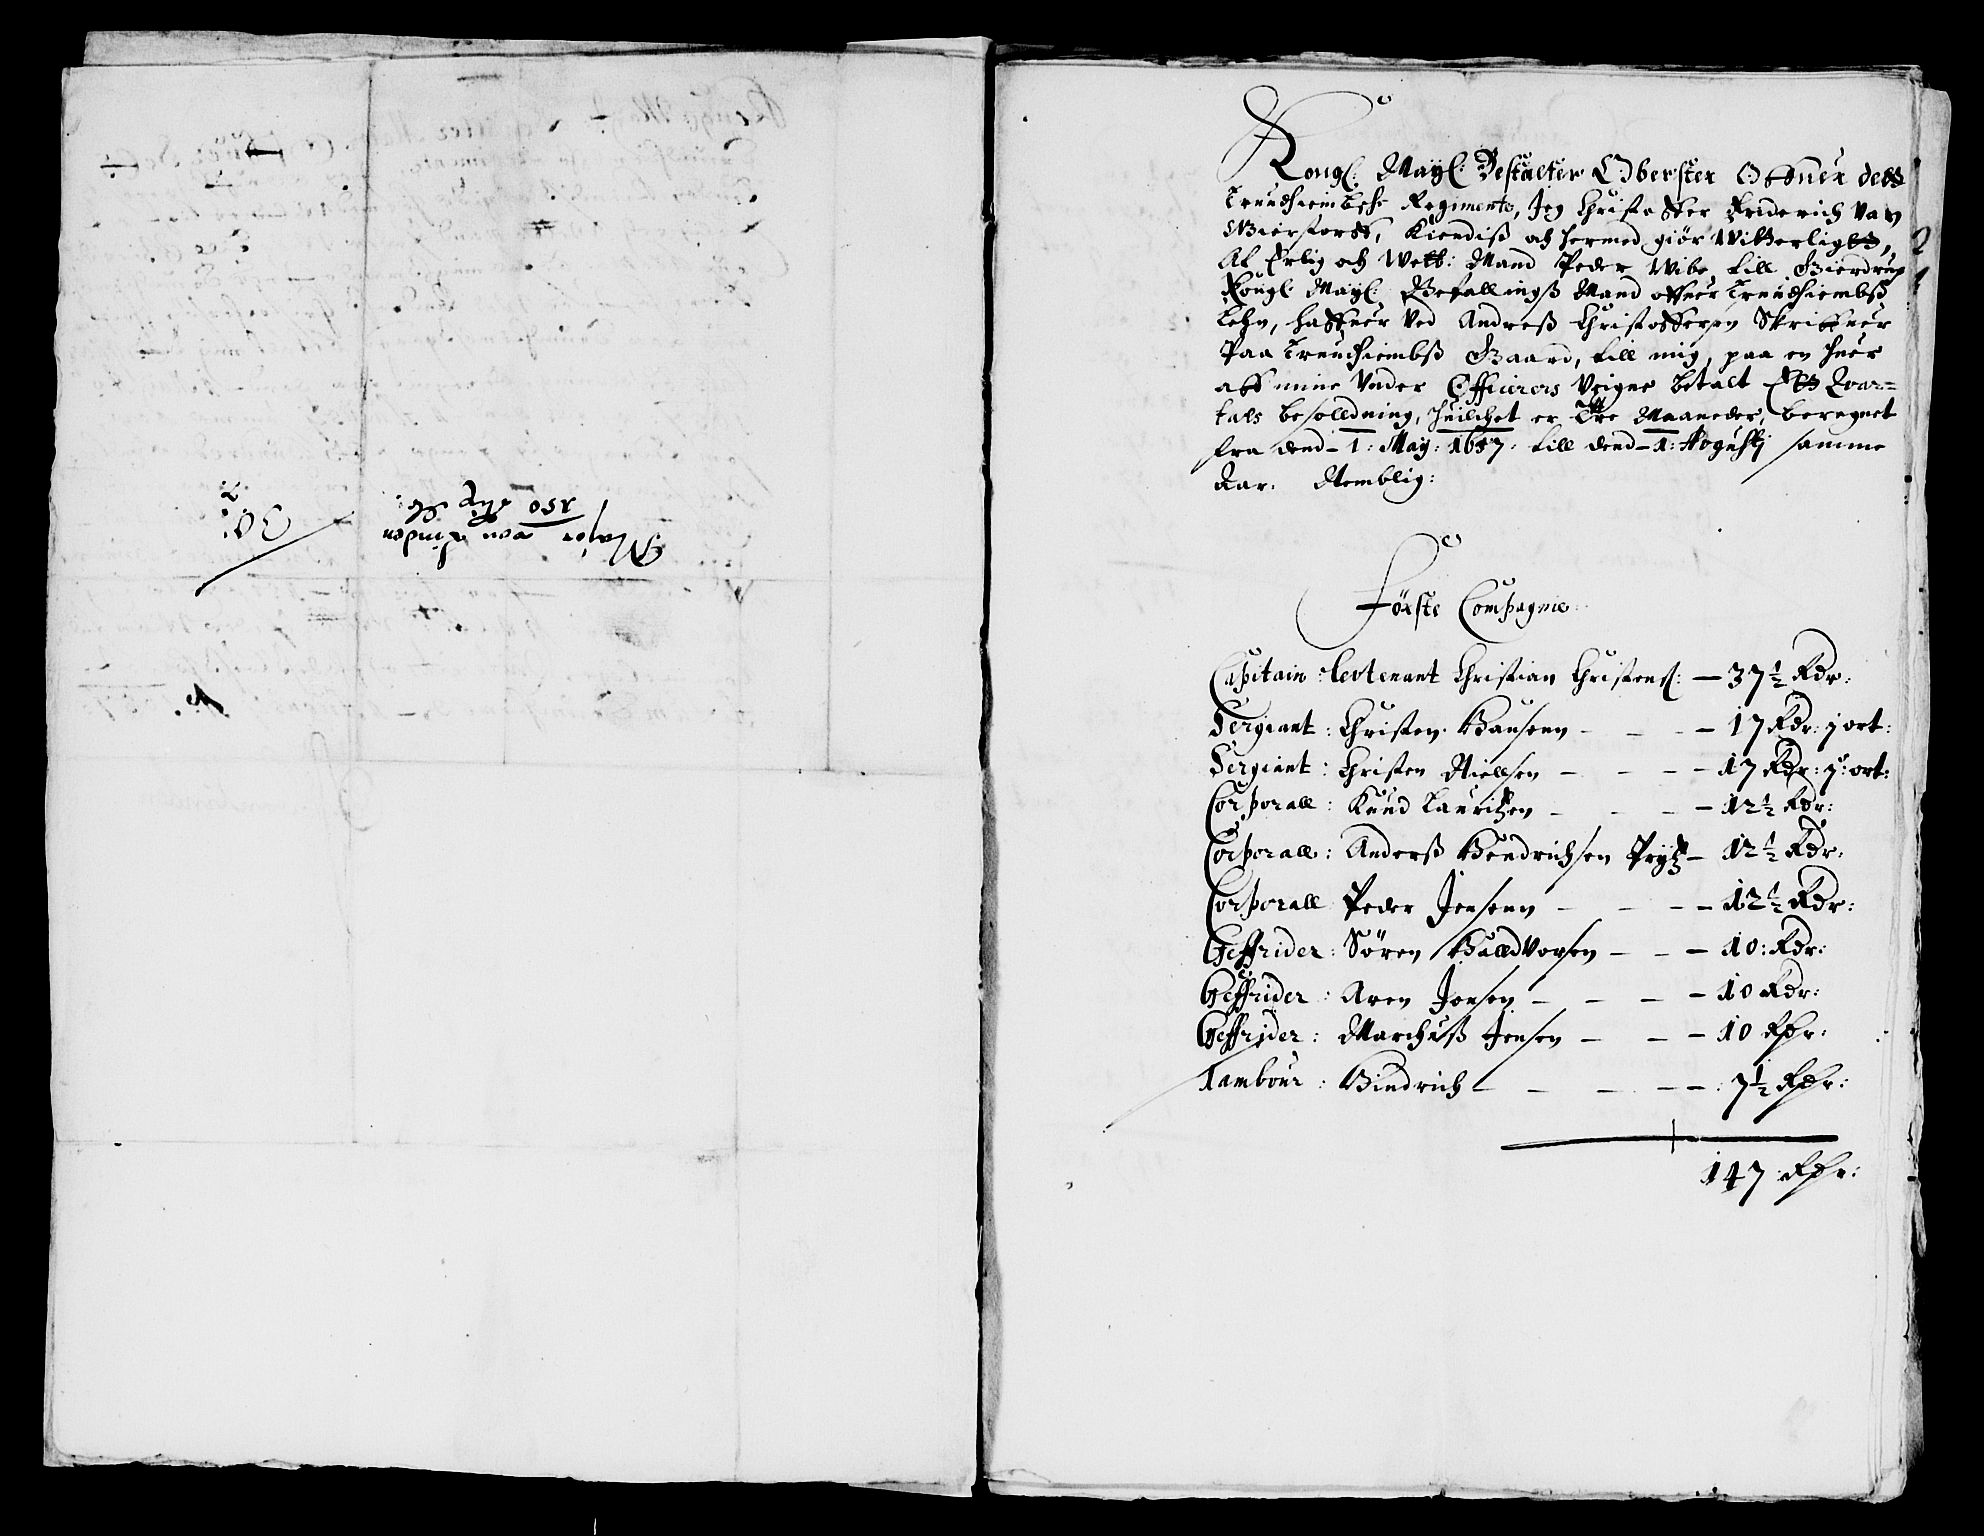 Major von Linden
250 Rdr
30:
2
Kongl: Mayl: Bestalter Oberster Offuer dett
Trundhiembsche Regimente, Jeg Christoffer Friderich van
Kiendiß och hermed giör Witterligtt,
At Erlig och Welb: Mand Peder Wibe till Gierdrup
Kongl: Mayl: Befallingß Mand offuer Trundhiembß
Lehn, haffuer ved Andreß Christoffersen Skriffuer
Paa Trundhiembß Gaard, till mig, paa en huer
aff mine Under Officerers Veigne betalt Ett Qvar=
tals besolldning, huilchet er Tre Maaneder, beregnet
fra dend - 1: May: 1657. till dend - 1: Augustj samme
Aar. Nemblig:
Förste Compagnie.
Capitain Levtenant Christian Christens: - 37½ Rdr:
Sergiant: Christen Hansenn - - - 17 Rdr: j ort:
Sergiant: Christen Nielsen - - - - 17 Rdr: j: ort:
Corporall: Knud Lauritzen - - - 12½ Rdr:
Corporall: Anderß Hendrichsen Prytz - 12½ Rdr:
Corporall Peder Jensenn - - - - 12½ Rdr:
Geffrider: Sören Halldvorsen - - - 10: Rdr:
Geffrider: Aren Jensen - - - - 10 Rdr:
Geffrider: Marchuß Jensen - - - 10 Rdr:
Tambour: Hindrich - - - - - 7½ Rdr:
147 Rdr: